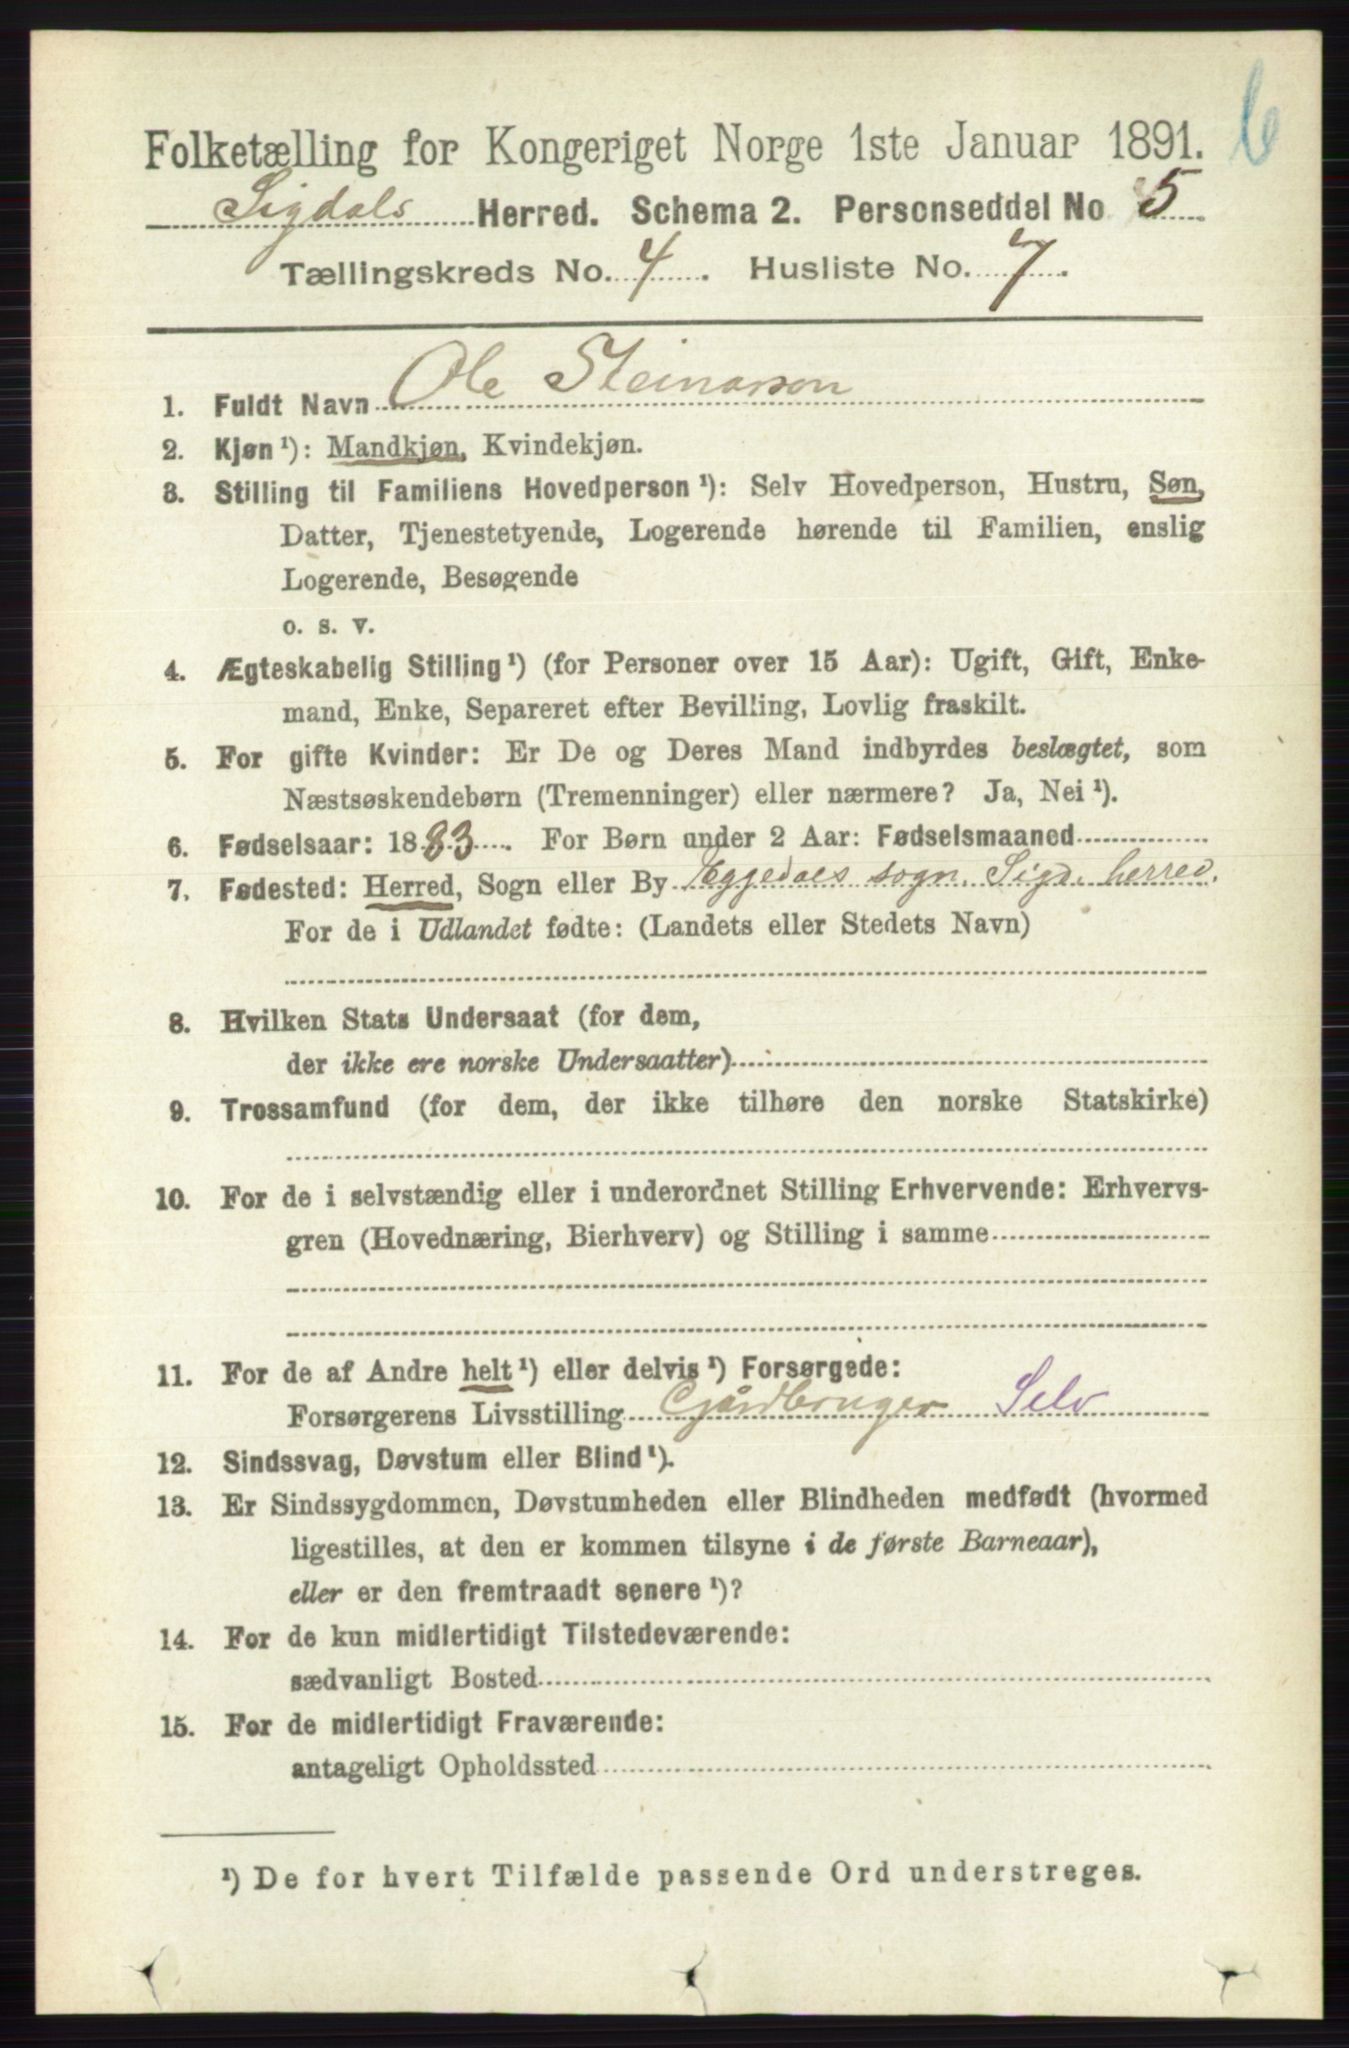 6
Folketælling for Kongeriget Norge 1ste Januar 1891.
Sigdals Herred. Schema 2. Personseddel No 5
Tællingskreds No. 4. Husliste No. 7.
1. Fuldt Navn Ole Steinarson
2. Kjøn ¹): Mandkjøn, Kvindekjøn.
3. Stilling til Familiens Hovedperson ¹): Selv Hovedperson, Hustru, Søn,
Datter, Tjenestetyende, Logerende hørende til Familien, enslig
Logerende, Besøgende
o. s. v.
4. Ægteskabelig Stilling ¹) (for Personer over 15 Aar): Ugift, Gift, Enke-
mand, Enke, Separeret efter Bevilling, Lovlig fraskilt.
5. For gifte Kvinder: Er De og Deres Mand indbyrdes beslægtet, som
Næstsøskendebørn (Tremenninger) eller nærmere? Ja, Nei ¹).
6. Fødselsaar: 1883. For Børn under 2 Aar: Fødselsmaaned
7. Fødested: Herred, Sogn eller By Eggedals sogn. Sigd. herred.
For de i Udlandet fødte: (Landets eller Stedets Navn)
8. Hvilken Stats Undersaat (for dem,
der ikke ere norske Undersaatter)
9. Trossamfund (for dem, der ikke tilhøre den norske Statskirke)
10. For de i selvstændig eller i underordnet Stilling Erhvervende: Erhvervs-
gren (Hovednæring, Bierhverv) og Stilling i samme
11. For de af Andre helt ¹) eller delvis ¹) Forsørgede:
Forsørgerens Livsstilling Gårdbruger Selv
12. Sindssvag, Døvstum eller Blind ¹).
13. Er Sindssygdommen, Døvstumheden eller Blindheden medfødt (hvormed
ligestilles, at den er kommen tilsyne i de første Barneaar),
eller er den fremtraadt senere ¹)?
14. For de kun midlertidigt Tilstedeværende:
sædvanligt Bosted
15. For de midlertidigt Fraværende:
antageligt Opholdssted
¹) De for hvert Tilfælde passende Ord understreges.